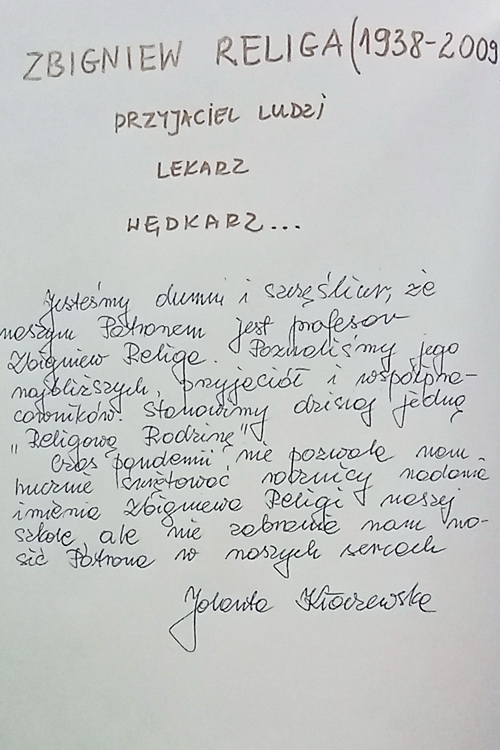 ZBIGNIEW RELIGA (1938-2009
PRZYJACIEL LUDZI
LEKARZ
WĘDKARZ...
Jesteśmy dumni i szczęśliwi, że
naszym Patronem jest profesor
Zbigniew Religa. Poznaliśmy jego
najbliższych, przyjaciół i współpra-
cowników. Stanowimy dzisiaj jedną
"Religową Rodzinę".
Czas pandemii nie pozwala nam
hucznie świętować rocznicy nadania
imienia Zbigniewa Religi naszej
szkole, ale nie zabrania nam no-
sić Patrona w naszych sercach
Jolanta Kłoczewska